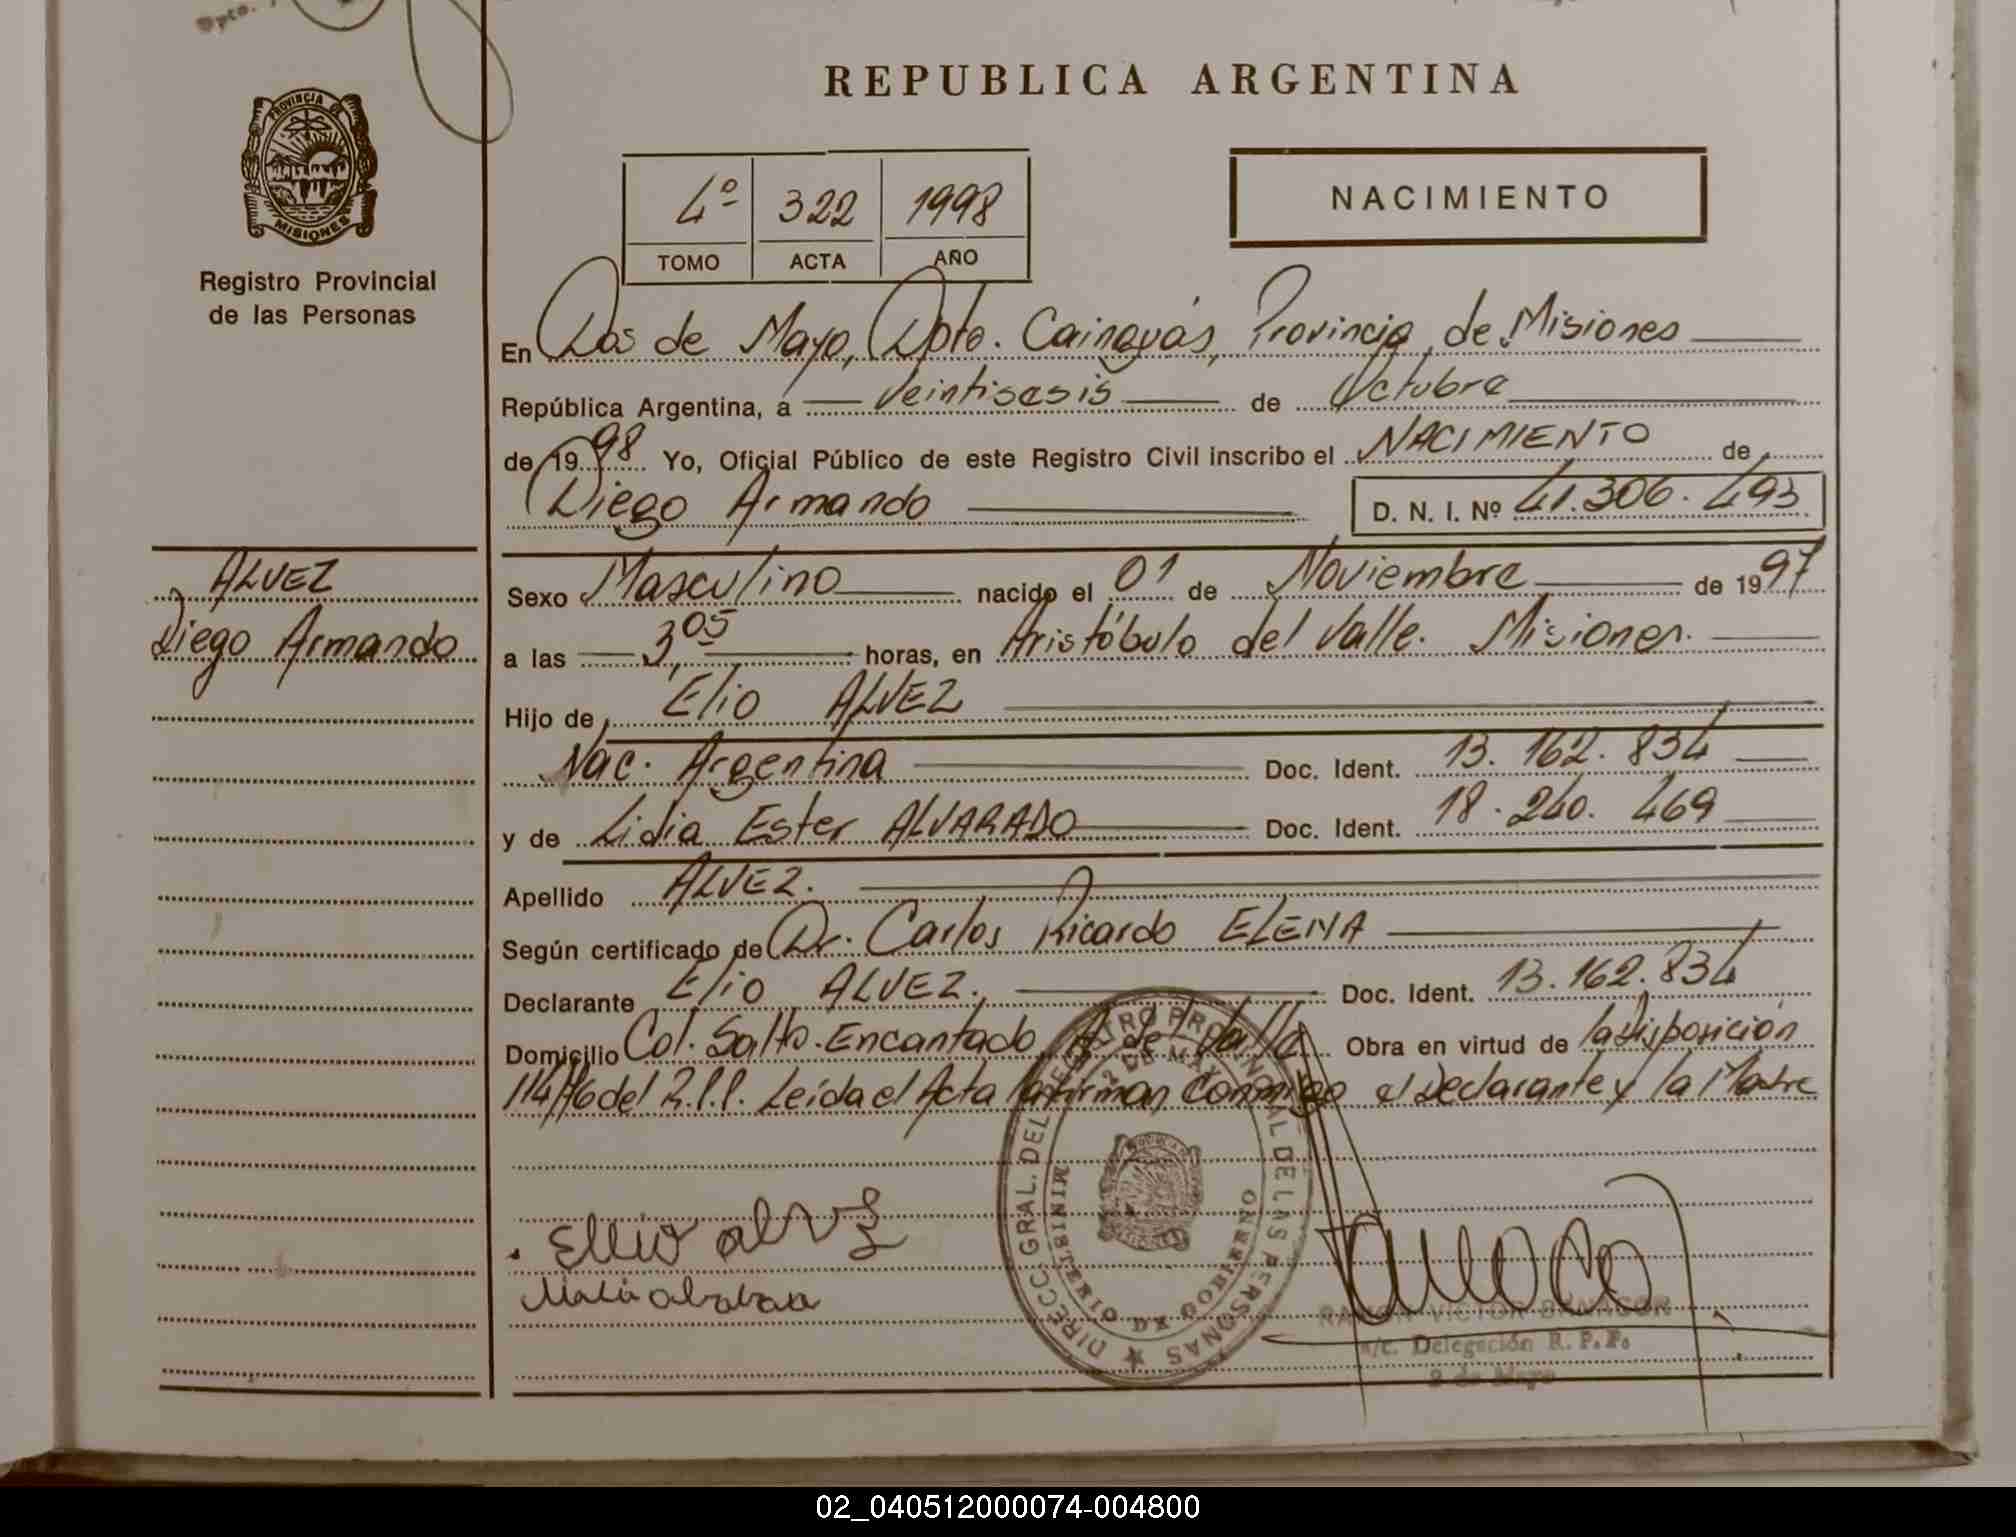 Dpto.
REPUBLICA ARGENTINA
PROVINCIA DE
MISIONES
Registro Provincial
de las Personas
4º 322 1998
TOMO ACTA AÑO
NACIMIENTO
En Dos de Mayo, Dpto. Cainguás, Provincia de Misiones
República Argentina, a Veintiseis de Octubre
de 1998 Yo, Oficial Público de este Registro Civil inscribo el NACIMIENTO de
Diego Armando D. N. I. Nº 41.306.493
ALVEZ
Diego Armando
Sexo Masculino nacido el 01 de Noviembre de 1997
a las 3,05 horas, en Aristóbulo del Valle. Misiones.
Hijo de Elio ALVEZ
Nac. Argentina Doc. Ident. 13.162.834
y de Lidia Ester ALVARADO Doc. Ident. 18.240.469
Apellido ALVEZ.
Según certificado de Dr. Carlos Ricardo ELENA
Declarante Elio ALVEZ., Doc. Ident. 13.162.834
Domicilio Col. Salto Encantado A. del Valle Obra en virtud de la Disposición
114/76 del R.P.P. Leída el Acta la firman Conmigo el Declarante y la Madre
DIRECC. GRAL. DEL REGISTRO PROVINCIAL DE LAS PERSONAS
2 DE MAYO
MINISTERIO DE GOBIERNO
Ellio alvez
RAMON VICTOR
a/c. Delegación R. P. P.
2 de Mayo
02_040512000074-004800